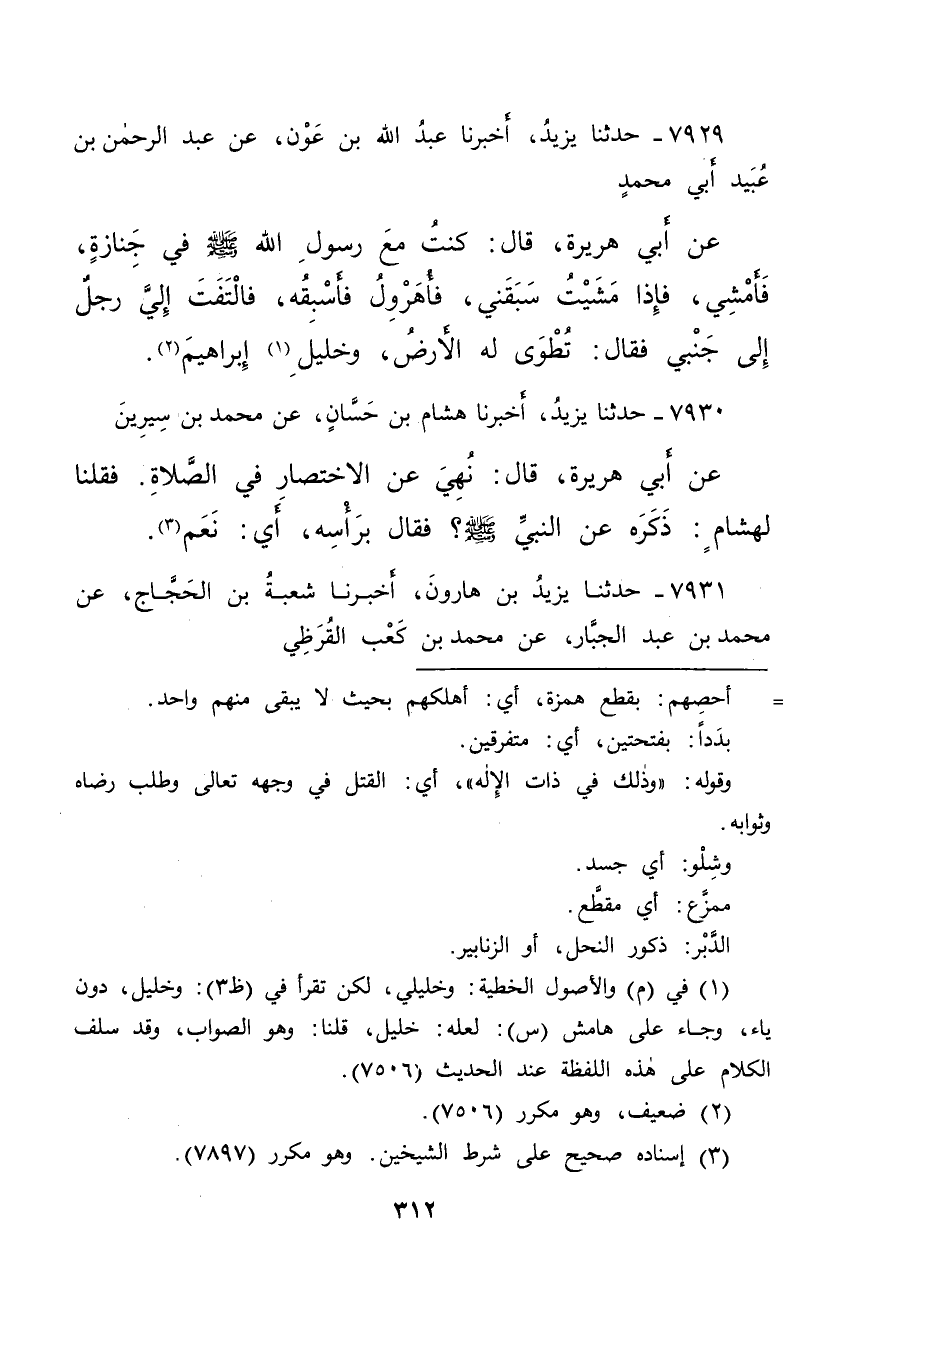 ٧٩٢٩ـ حدثنا يزيدُ، أَخبرنا عبدُ الله بن عَوْن، عن عبد الرحمٰن بن
عُبَيد أَبي محمدٍ
عن أَبي هريرة، قال: كنتُ معَ رسولِ الله ﷺ في جَنازةٍ،
فَأَمْشِي، فإِذا مَشَيْتُ سَبَقَني، فأُهَرْوِلُ فأَسْبِقُه، فالْتَفَتَ إِليَّ رجلٌ
إِلى جَنْبي فقال: تُطْوَى له الأَرضُ، وخليلِ(١) إِبراهيمَ(٢).
٧٩٣٠ـ حدثنا يزيدُ، أَخبرنا هشام بن حَسَّانٍ، عن محمد بن سِيرِينَ
عن أَبي هريرة، قال: نُهِيَ عن الاختصارِ في الصَّلاةِ. فقلنا
لهشامٍ: ذَكَرَه عن النبيِّ ﷺ؟ فقال برَأْسِه، أَي: نَعَم(٣).
٧٩٣١ـ حدثنا يزيدُ بن هارونَ، أَخبرنا شعبةُ بن الحَجَّاج، عن
محمد بن عبد الجبَّار، عن محمد بن كَعْب القُرَظِي
= أحصِهم: بقطع همزة، أي: أهلكهم بحيث لا يبقى منهم واحد.
بدَداً: بفتحتين، أي: متفرقين.
وقوله: «وذٰلك في ذات الإلٰه»، أي: القتل في وجهه تعالى وطلب رضاه
وثوابه.
وشِلْو: أي جسد.
ممزَّع: أي مقطَّع.
الدَّبْر: ذكور النحل، أو الزنابير.
(١) في (م) والأصول الخطية: وخليلي، لكن تقرأ في (ظ٣): وخليل، دون
ياء، وجاء على هامش (س): لعله: خليل، قلنا: وهو الصواب، وقد سلف
الكلام على هٰذه اللفظة عند الحديث (٧٥٠٦).
(٢) ضعيف، وهو مكرر (٧٥٠٦).
(٣) إسناده صحيح على شرط الشيخين. وهو مكرر (٧٨٩٧).
٣١٢